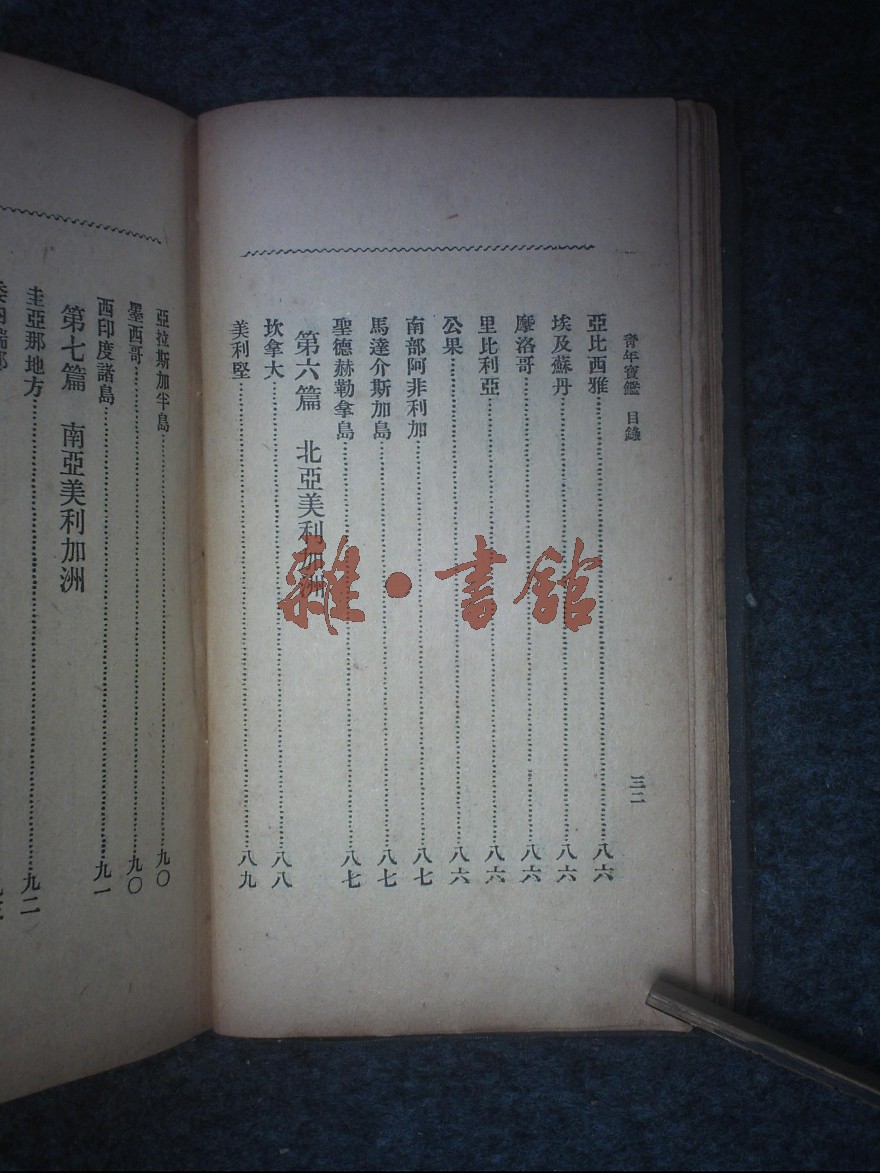 青年寶鑑 目錄 三二
亞比西雅……八六
埃及蘇丹……八六
摩洛哥……八六
里比利亞……八六
公果……八六
南部阿非利加……八七
馬達介斯加島……八七
聖德赫勒拿島……八七
第六篇 北亞美利加洲
坎拿大……八八
美利堅……八九
亞拉斯加半島……九〇
墨西哥……九〇
西印度諸島……九一
第七篇 南亞美利加洲
圭亞那地方……九二
雜·書館